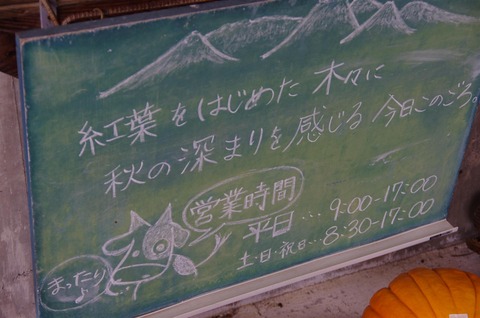 紅葉をはじめた 木々に
秋の深まりを感じる 今日このごろ。
営業時間
平日…9:00-17:00
土・日・祝日…8:30-17:00
まったり♪